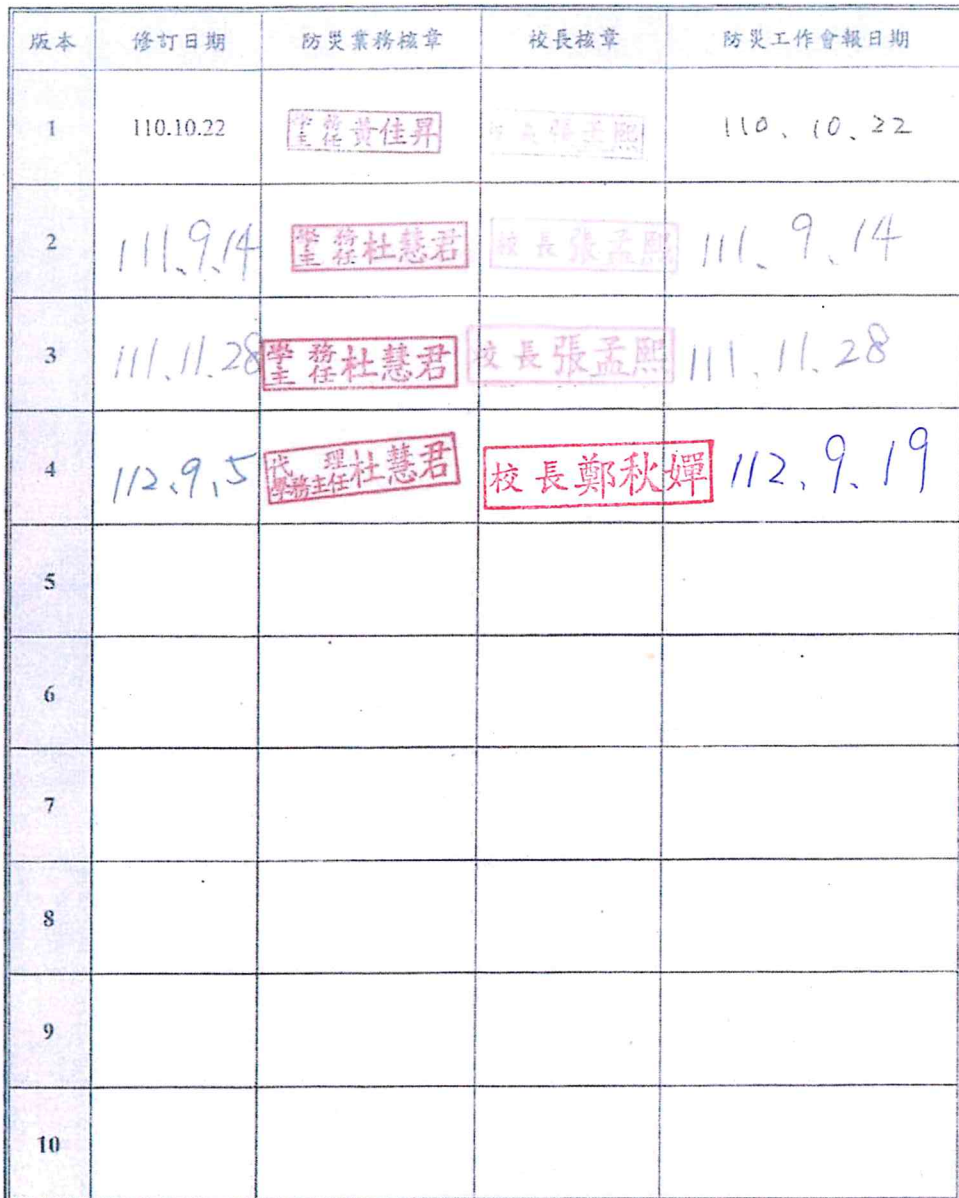 版本 修訂日期 防災業務核章 校長核章 防災工作會報日期
1 110.10.22 學務主任黃佳昇 校長張孟熙 110、10、22
2 111、9、14 學務主任杜慧君 校長張孟熙 111、9、14
3 111.11.28 學務主任杜慧君 校長張孟熙 111、11、28
4 112、9、5 代理學務主任杜慧君 校長鄭秋嬋 112、9、19
5
6
7
8
9
10